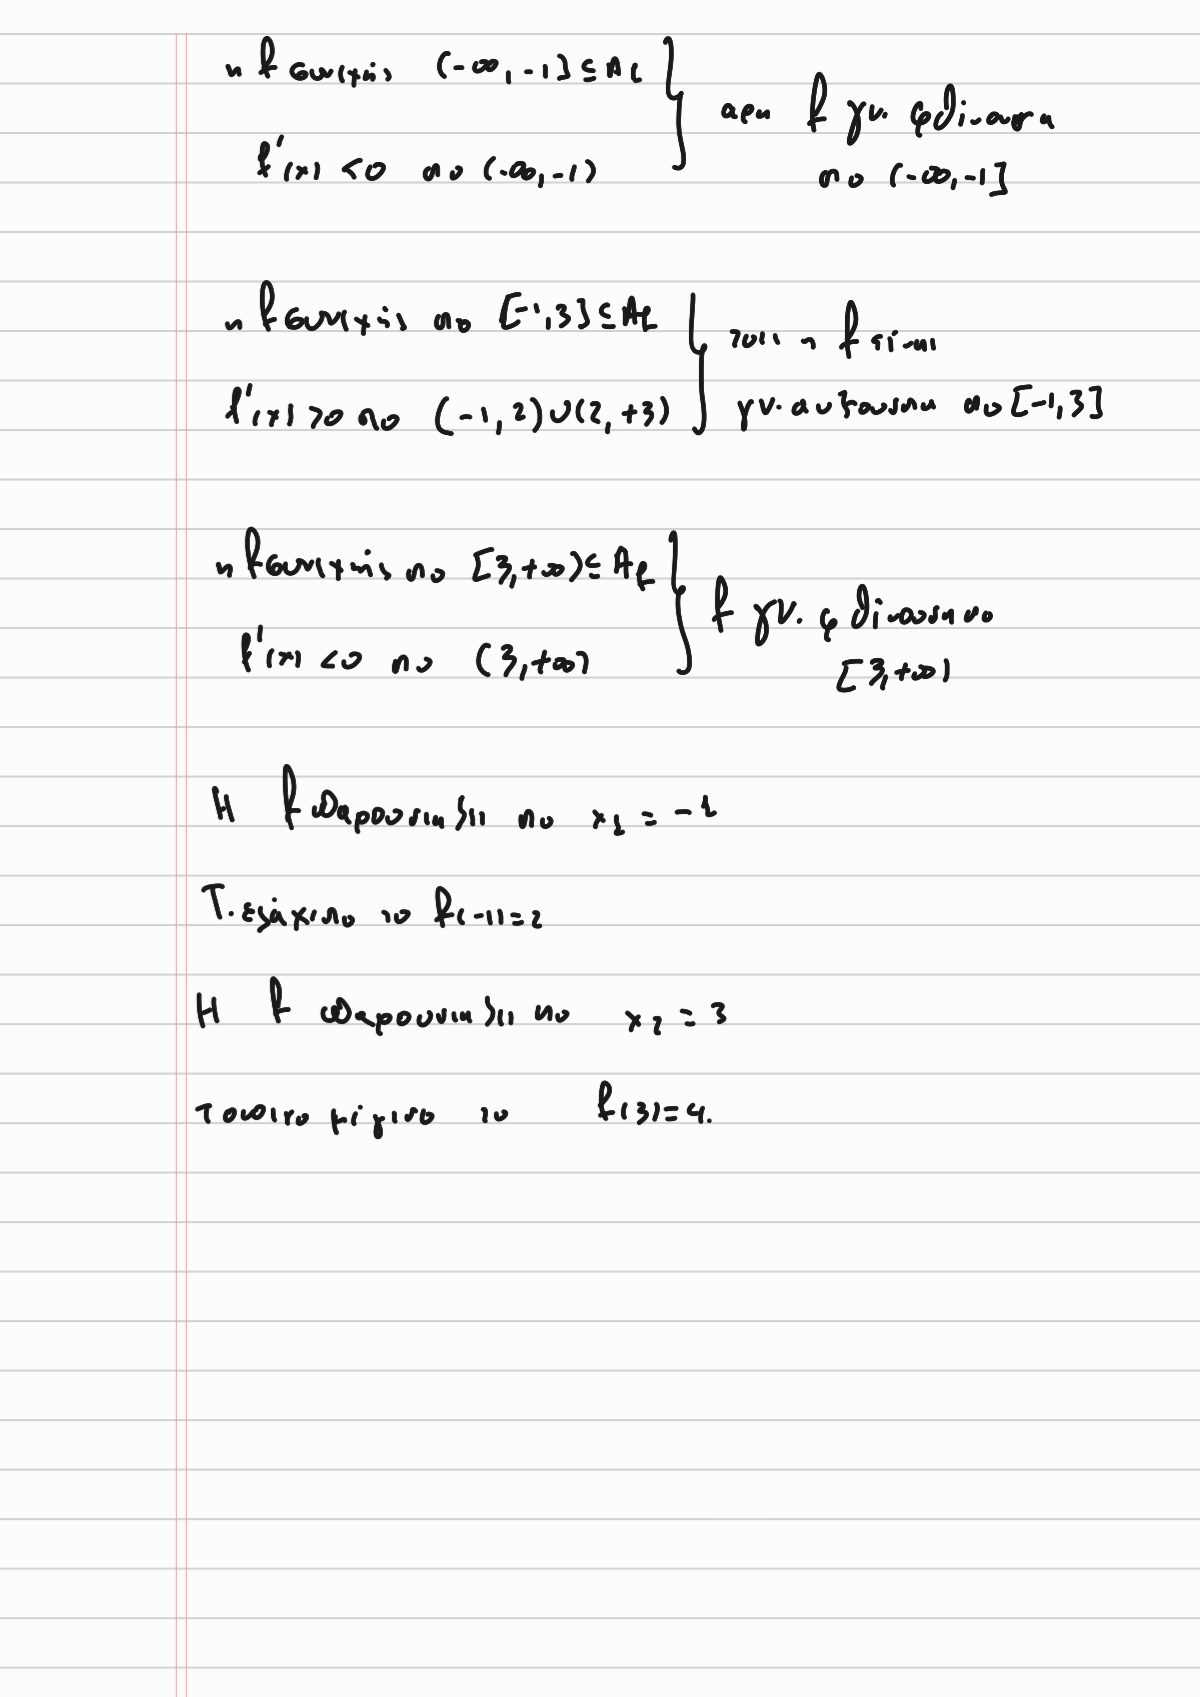 η f συνεχής (-∞, -1] ⊆ A_f
f'(x) < 0 στο (-∞, -1)
αρα f γν. φθίνουσα
στο (-∞, -1]
η f συνεχής στο [-1, 3] ⊆ A_f
f'(x) > 0 στο (-1, 2) ∪ (2, +3)
τότε η f είναι
γν. αυξουσα στο [-1, 3]
η f συνεχής στο [3, +∞) ⊆ A_f
f'(x) < 0 στο (3, +∞)
f γν. φθίνουσα στο
[3, +∞)
Η f παρουσιαζει στο x₁ = -1
Τ. ελάχιστο το f(-1) = 2
Η f παρουσιαζει στο x₂ = 3
τοπικο μέγιστο το f(3) = 4.